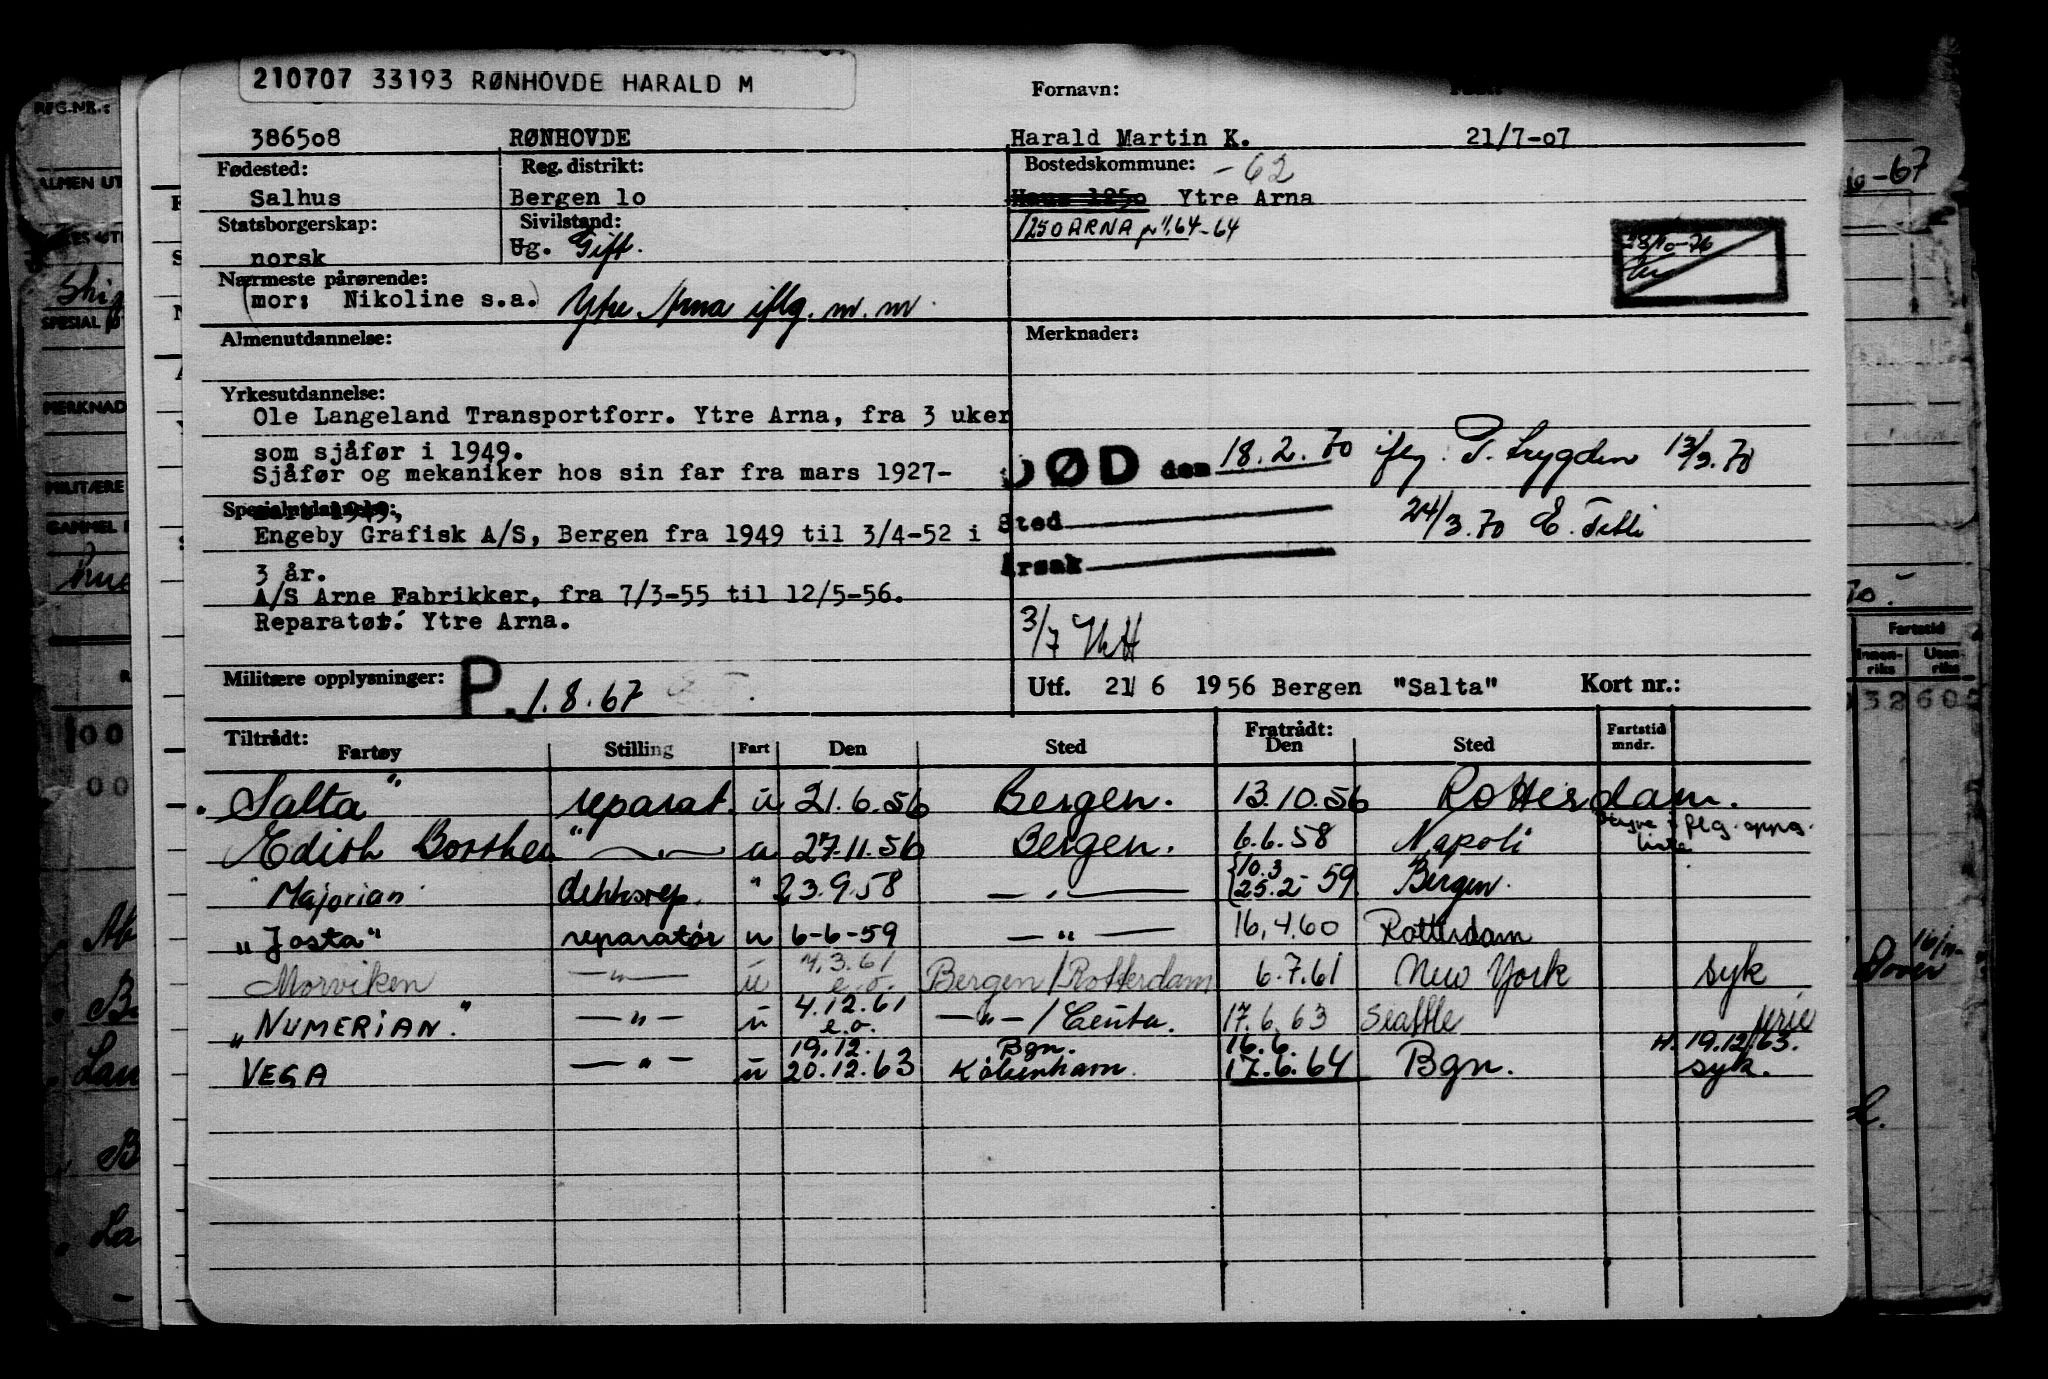 210707 33193 RØNHOVDE HARALD M
Fornavn:
386508 RØNHOVDE Harald Martin K. 21/7-07
Fødested: Reg. distrikt: Bostedskommune: -62
Salhus Bergen 1o Ytre Arna
Statsborgerskap: Sivilstand: 1250 ARNA 64-64
norsk Ug. Gift.
28/10-76
Nærmeste pårørende:
(mor: Nikoline s.a.) Ytre Arna iflg. m. m
Almenutdannelse: Merknader:
Yrkesutdannelse:
Ole Langeland Transportforr. Ytre Arna, fra 3 uker
som sjåfør i 1949.
Sjåfør og mekaniker hos sin far fra mars 1927-
DØD den 18.2.70 ifg. 13/3.70
Spesialutdannelse: 1949,
Engeby Grafisk A/S, Bergen fra 1949 til 3/4-52 i
Sted 24/3.70 E.
3 år.
Årsak
A/S Arne Fabrikker, fra 7/3-55 til 12/5-56.
Reparatør. Ytre Arna.
3/7
Militære opplysninger: P. 1.8.67
Utf. 21 6 1956 Bergen "Salta" Kort nr.:
Tiltrådt: Fratrådt: Fartstid
Fartøy Stilling Fart Den Sted Den Sted mndr.
Salta" reparat. u 21.6.56 Bergen. 13.10.56 Rotterdam.
Edith Borthen " u 27.11.56 Bergen. 6.6.58 Napoli flg. oppg. liste
"Majorian" dekksrep. " 23.9.58 " {10.3 25.2- 59 Bergen.
"Josta" reparatør u 6-6-59 " 16.4.60 Rotterdam
Morviken " u 4.3.61 e.o. Bergen/Rotterdam 6.7.61 New York syk
"NUMERIAN." " u 4.12.61 e.o. "/Ceuta. 17.6.63 Seattle ferie
H. 19.12.63.
VEGA " u 19.12. 20.12.63 Bgn. København. 16.6. 17.6.64 Bgn. syk.
REG.NR.:
ALMEN UT
SPESIAL
MERKNAD
MILITÆRE
GAMMEL
-67
Fartstid
Innen-riks Uten-riks
32605